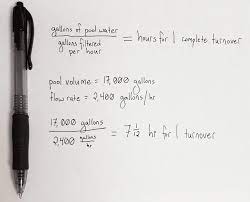 gallons of pool water
gallons filtered per hour
= hours for 1 complete turnover
pool volume = 17,000 gallons
flow rate = 2,400 gallons/hr
17,000 gallons
2,400 gallons/hr
= 7 1/12 hr for 1 turnover